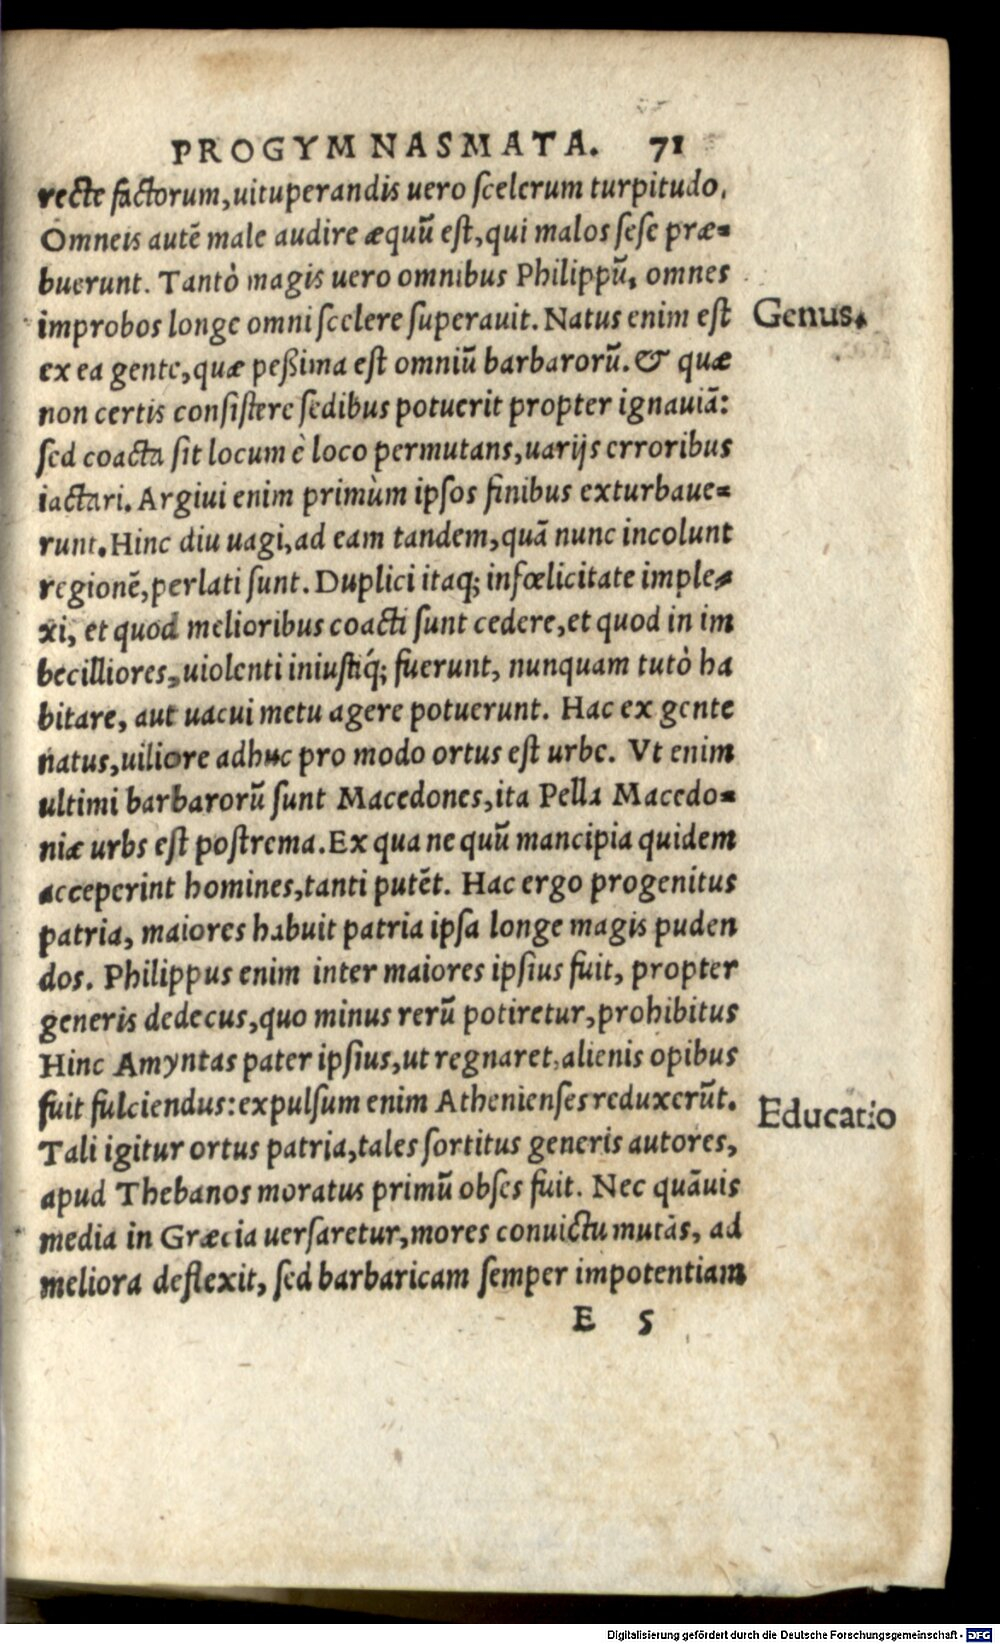 PROGYMNASMATA. 71
recte factorum, uituperandis uero scelerum turpitudo.
Omneis autē male audire æquū est, qui malos sese præ=
buerunt. Tantò magis uero omnibus Philippū, omnes
improbos longe omni scelere superauit. Natus enim est
Genus.
ex ea gente, quæ peßima est omniū barbarorū. & quæ
non certis consistere sedibus potuerit propter ignauiā:
sed coacta sit locum è loco permutans, uarijs erroribus
iactari. Argiui enim primùm ipsos finibus exturbaue=
runt. Hinc diu uagi, ad eam tandem, quā nunc incolunt
regionē, perlati sunt. Duplici itaq; infœlicitate imple=
xi, et quod melioribus coacti sunt cedere, et quod in im
becilliores, uiolenti iniustiq́; fuerunt, nunquam tutò ha
bitare, aut uacui metu agere potuerunt. Hac ex gente
natus, uiliore adhuc pro modo ortus est urbe. Vt enim
ultimi barbarorū sunt Macedones, ita Pella Macedo=
niæ urbs est postrema. Ex qua ne quū mancipia quidem
acceperint homines, tanti putēt. Hac ergo progenitus
patria, maiores habuit patria ipsa longe magis puden
dos. Philippus enim inter maiores ipsius fuit, propter
generis dedecus, quo minus rerū potiretur, prohibitus
Hinc Amyntas pater ipsius, ut regnaret, alienis opibus
fuit fulciendus: expulsum enim Athenienses reduxerūt.
Educatio
Tali igitur ortus patria, tales sortitus generis autores,
apud Thebanos moratus primū obses fuit. Nec quāuis
media in Græcia uersaretur, mores conuictu mutās, ad
meliora deflexit, sed barbaricam semper impotentiam
E 5
Digitalisierung gefördert durch die Deutsche Forschungsgemeinschaft - DFG